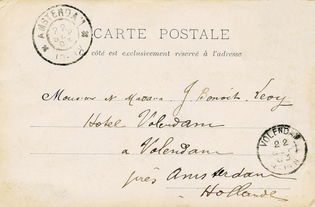 AMSTERDAM
CARTE POSTALE
côté est exclusivement réservé à l'adresse.
Monsieur et Madame J. Benoit-Levy
Hotel Volendam
à Volendam
près Amsterdam
Hollande
VOLENDAM
22